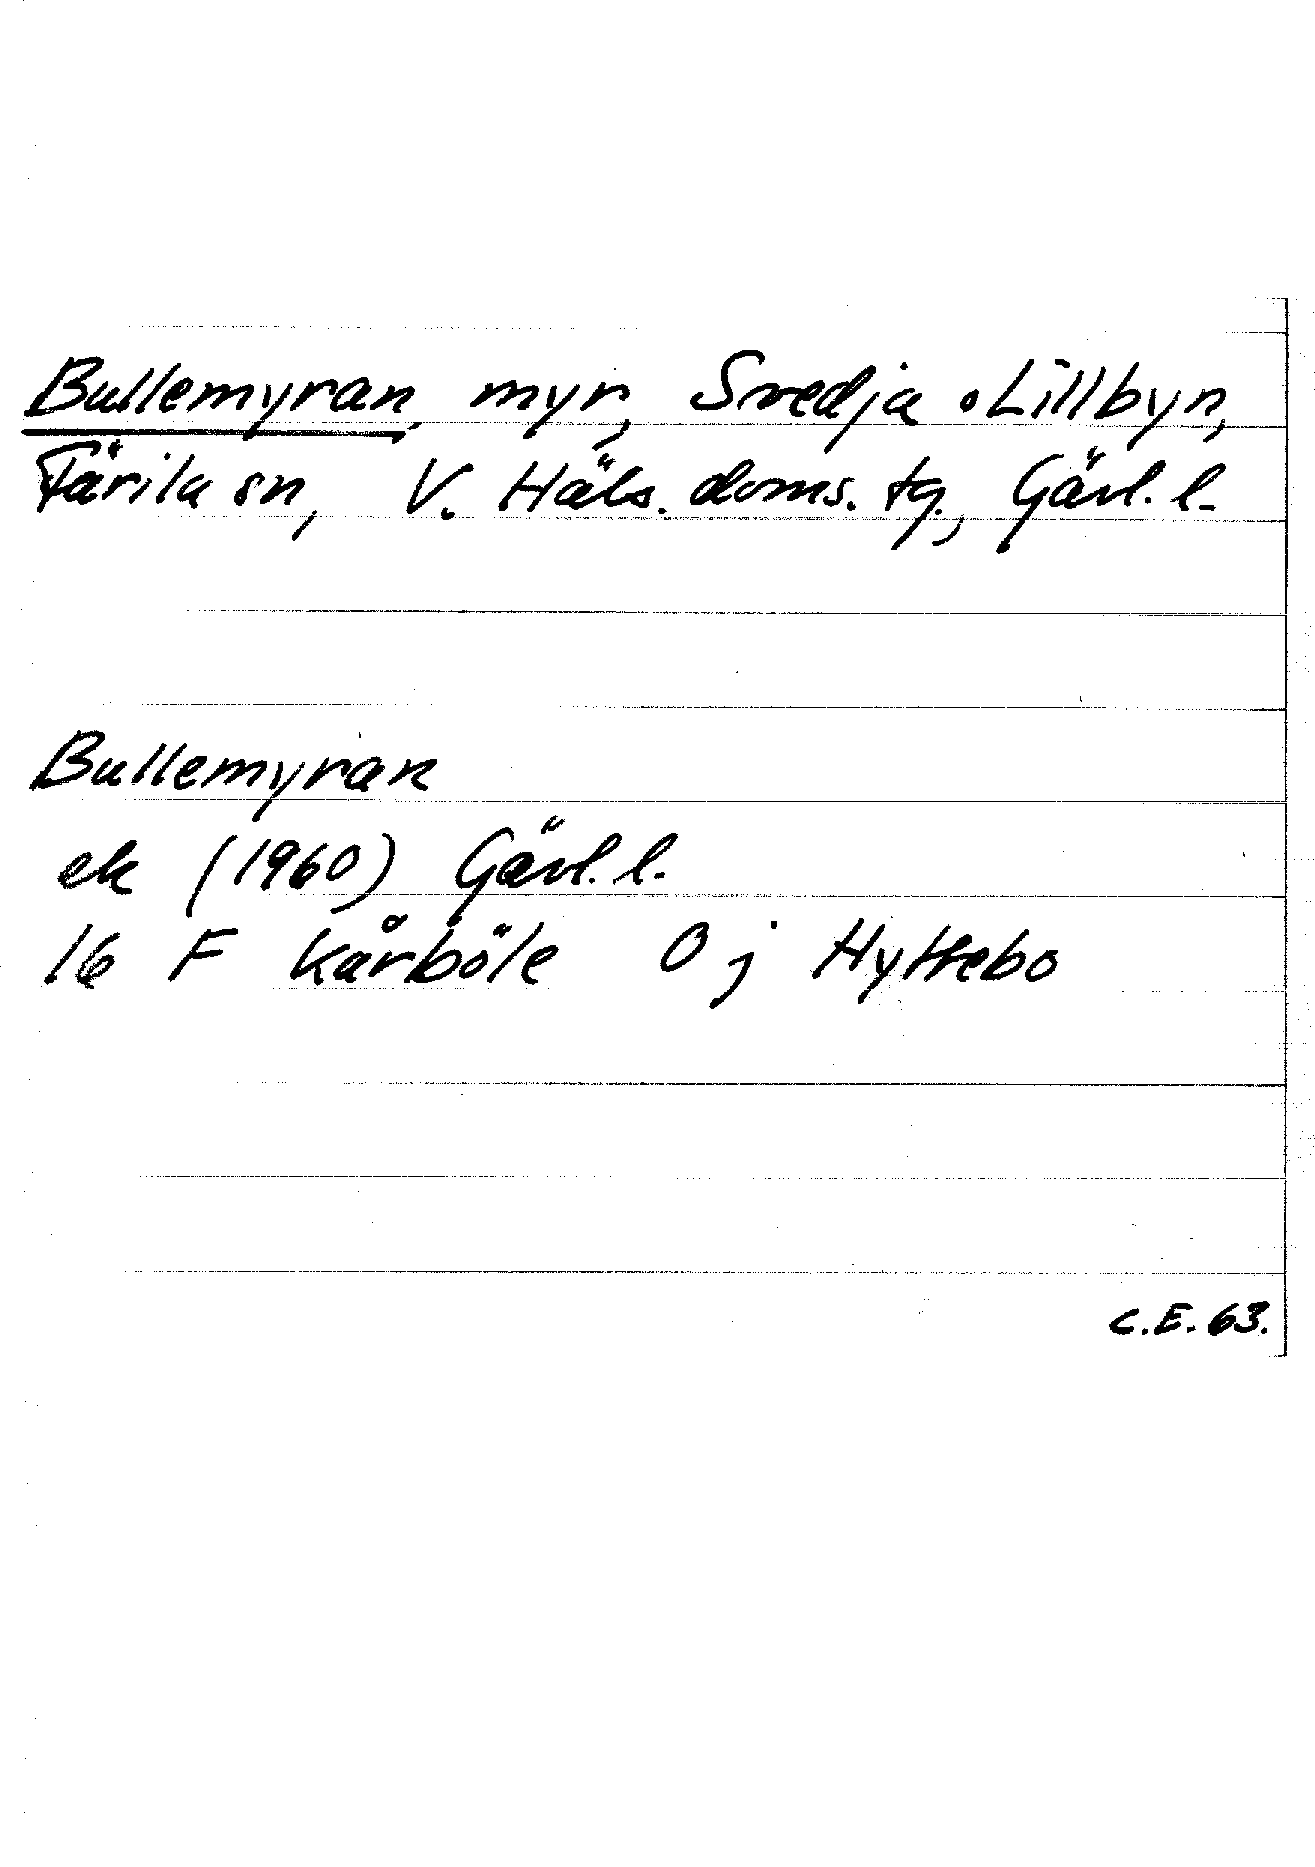 Bullemyran, myr, Svedja o Lillbyn,
Färila sn, V. Häls. doms. tg., Gävl. l.
Bullemyran
ek (1960) Gävl. l.
16 F Kårböle 0 j Hyttebo
C.E. 63.